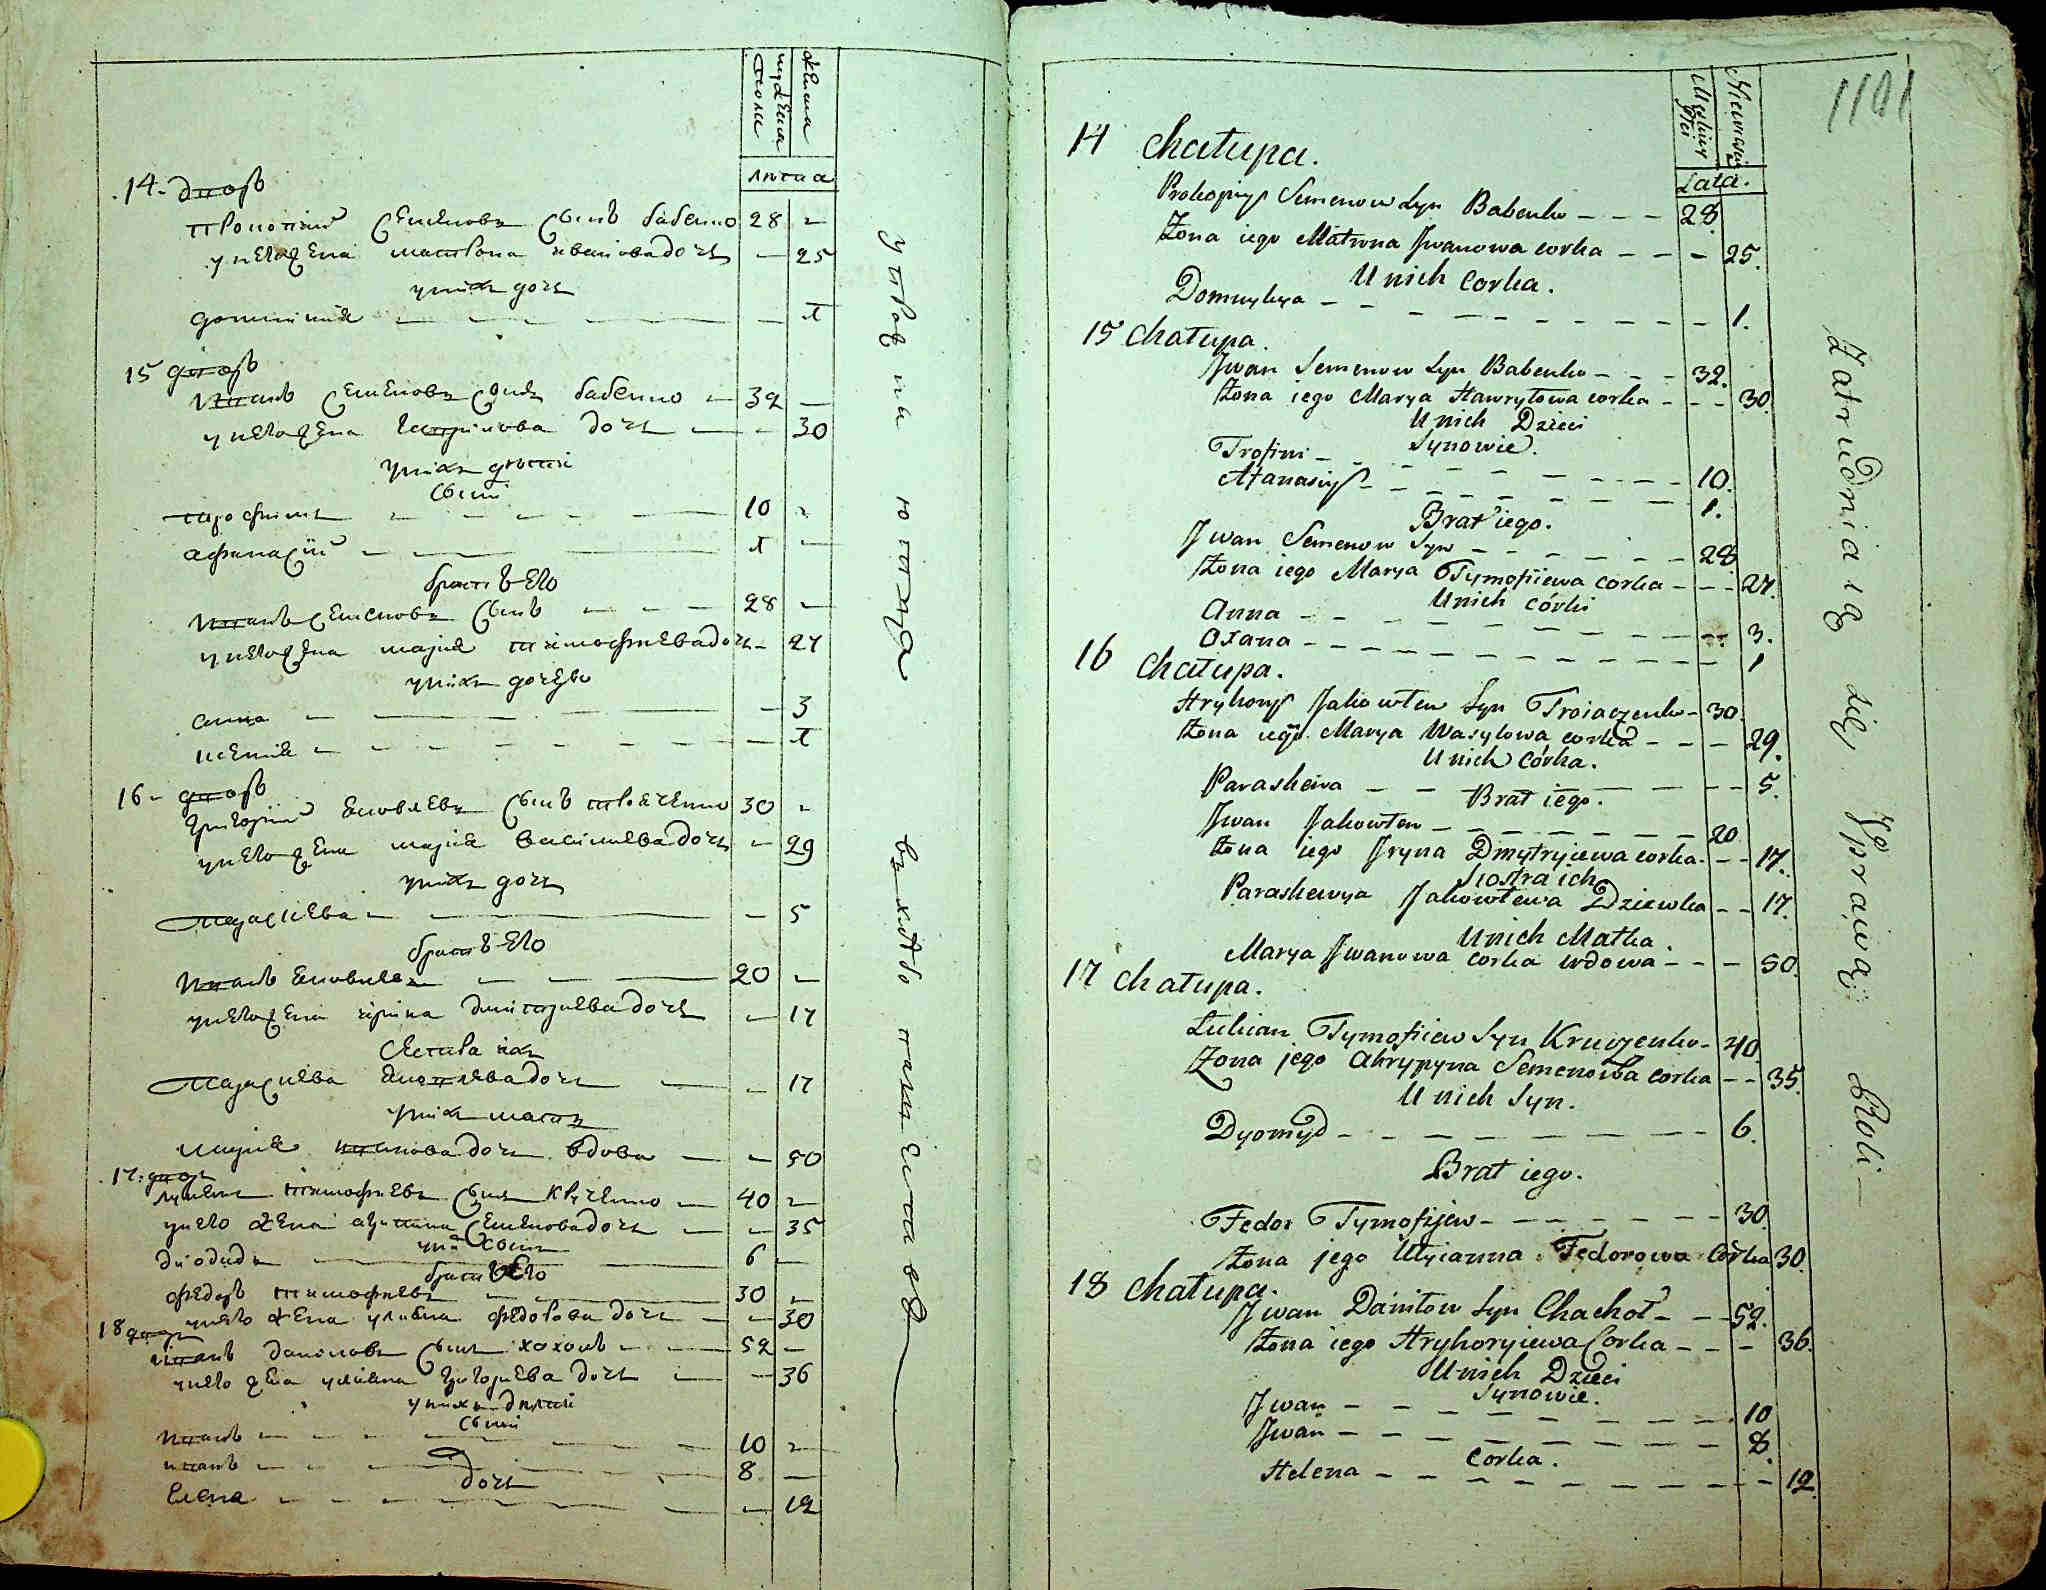 мужеска
полu
женска
лѣта
14. дворъ
прокопий семеновъ сынъ бабенко 28 –
у него жена матрона иванова дочь – 25
у нихъ дочь
доминикия – 1
15 дворъ
иванъ семеновъ сынъ бабенко – 32 –
у него жена гаврилова дочь – 30
у нихъ дѣти
сыни
трофимъ – 10 –
афанасий – 1 –
братъ его
иванъ семеновъ сынъ – 28 –
у него жена мария тимофиева дочь – 27
у нихъ дочери
анна – 3
ксения – 1
16 – дворъ
григорий яковлевъ сынъ трояченко 30 –
у него жена мария василиева дочь – 29
у нихъ дочь
параскева – 5
братъ его
иванъ яковлевъ – 20 –
у него жена ирина дмитриева дочь – 17
сестра ихъ
параскева яковлева дочь – 17
у нихъ мать
мария иванова дочь вдова – 50
17. дворъ
лукянъ тимофиевъ сынъ кручено – 40 –
у него жена агрипина семенова дочь – 35
у них сынъ
диодидъ – 6 –
братъ его
федоръ тимофиевъ – 30 –
у него жена улияна федорова дочь – 30
18 дворъ
иванъ даниловъ сынъ хохолъ – 52 –
у него жена улияна григориева дочь – 36
у нихъ дѣти
сыни
иванъ – 10 –
иванъ – 8 –
дочь
елена – 12
въ хлѣбо пашествѣ
1101
Męskiey
Płci
Niewieściey
Lata.
14 Chałupa.
Prokopiy Semenow Syn Babenko – – – 28.
Żona iego Matrona Jwanowa corka – – – 25.
U nich Corka.
Domnykya – – – 1.
15 Chałupa.
Jwan Semenow Syn Babenko – – – 32.
Żona iego Marya Hawryłowa corka – – – 30.
U nich Dzieci
Synowie.
Trofim – – – 10.
Afanasiy – – – 1.
Brat iego.
Jwan Semenow Syn – – – 28
Żona iego Marya Tymofiiewa corka – – – 27.
U nich córki
Anna – – – 3.
Oxana – – – 1
16 Chałupa.
Hryhory Jakowlew Syn Troiaczenko – 30.
Żona iego Marya Wasylowa corka – – – 29.
U nich Córka.
Paraskewa – – – 5.
Brat iego.
Jwan Jakowlew – – – 20
Żona iego Jryna Dmytryiewa corka. – – 17.
Siostra ich
Paraskewya Jakowlewa Dziewka – – 17.
U nich Matka.
Marya Jwanowa corka wdowa – – – 50.
17 Chałupa.
Łukian Tymofiiew Syn Kruczenko – 40.
Żona jego Ahrypyna Semenowa corka – – 35.
U nich Syn.
Dyomyd – – – 6.
Brat iego.
Fedor Tymofijew – – – 30.
Żona jego Ulyianna Fedorowa Córka 30.
18 Chałupa.
Jwan Daniłow Syn Chachoł – – 52.
Żona iego Hryhoryiewa Corka – – – 36.
U nich Dzieci
Synowie.
Jwan – – – 10
Jwan – – – 8.
Corka.
Helena – – – 12.
Zatrudnia ią się Vprawą Roli –